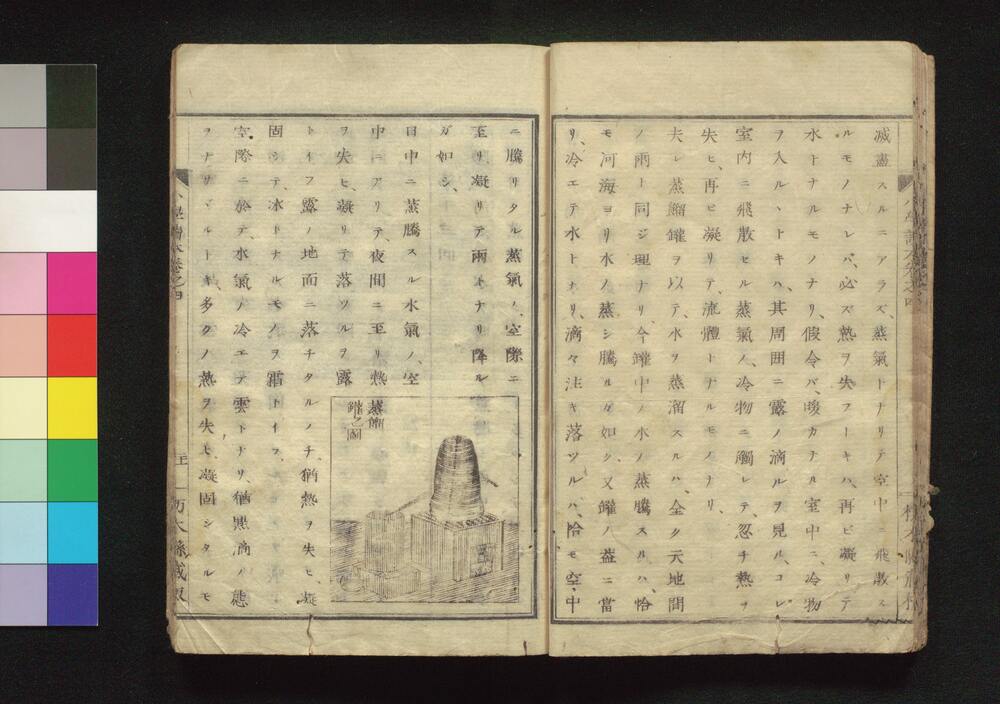 減盡スルニアラズ、蒸氣トナリテ空中ニ飛散ス
ルモノナレバ、必ズ熱ヲ失フトキハ、再ビ凝リテ
水トナルモノナリ、假令バ、暖カナル室中ニ、冷物
ヲ入ルヽトキハ、其周囲ニ露ノ滴ルヲ見ル、コレ
室内ニ飛散セル蒸氣ノ、冷物ニ觸レテ、忽チ熱ヲ
失ヒ、再ビ凝リテ、流體トナルモノナリ、
夫レ蒸餾罐ヲ以テ、水ヲ蒸溜スルハ、全ク天地間
ノ雨ト同ジ理ナリ、今罐中ノ水ノ蒸騰スルハ、恰
モ河海ヨリ水ノ蒸シ騰ルガ如シ、又罐ノ蓋ニ當
リ、冷エテ水トナリ、滴々注キ落ツルハ、恰モ空中
ニ騰リタル蒸氣ノ、空際ニ
至リ凝リテ雨トナリ降ル
ガ如シ、
日中ニ蒸騰スル水氣ノ、空
中ニアリテ、夜間ニ至リ熱
ヲ失ヒ、凝リテ落ツルヲ露
トイフ、露ノ地面ニ落チタルノチ、猶熱ヲ失ヒ、凝
固シテ、冰トナルモノヲ霜トイフ、
空際ニ於テ、水氣ノ冷エテ雲トナリ、猶點滴ノ態
ヲナサヾルトキ、多クノ熱ヲ失ヒ、凝固シタルモ
蒸餾
罐之圖